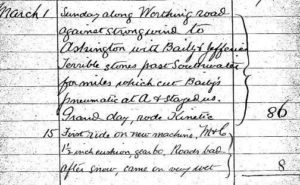 March 1 Sunday along Worthing road
against strong wind to
Ashington with Baily & Jefferies
Terrible stones past Southwater
for miles which cut Baily's
pneumatic at A & stayed us.
Grand day, rode Kinetic 86
15 First ride on new machine, M & C
1⅛ inch cushion, gear 60. Roads bad
after snow, came on very wet 8